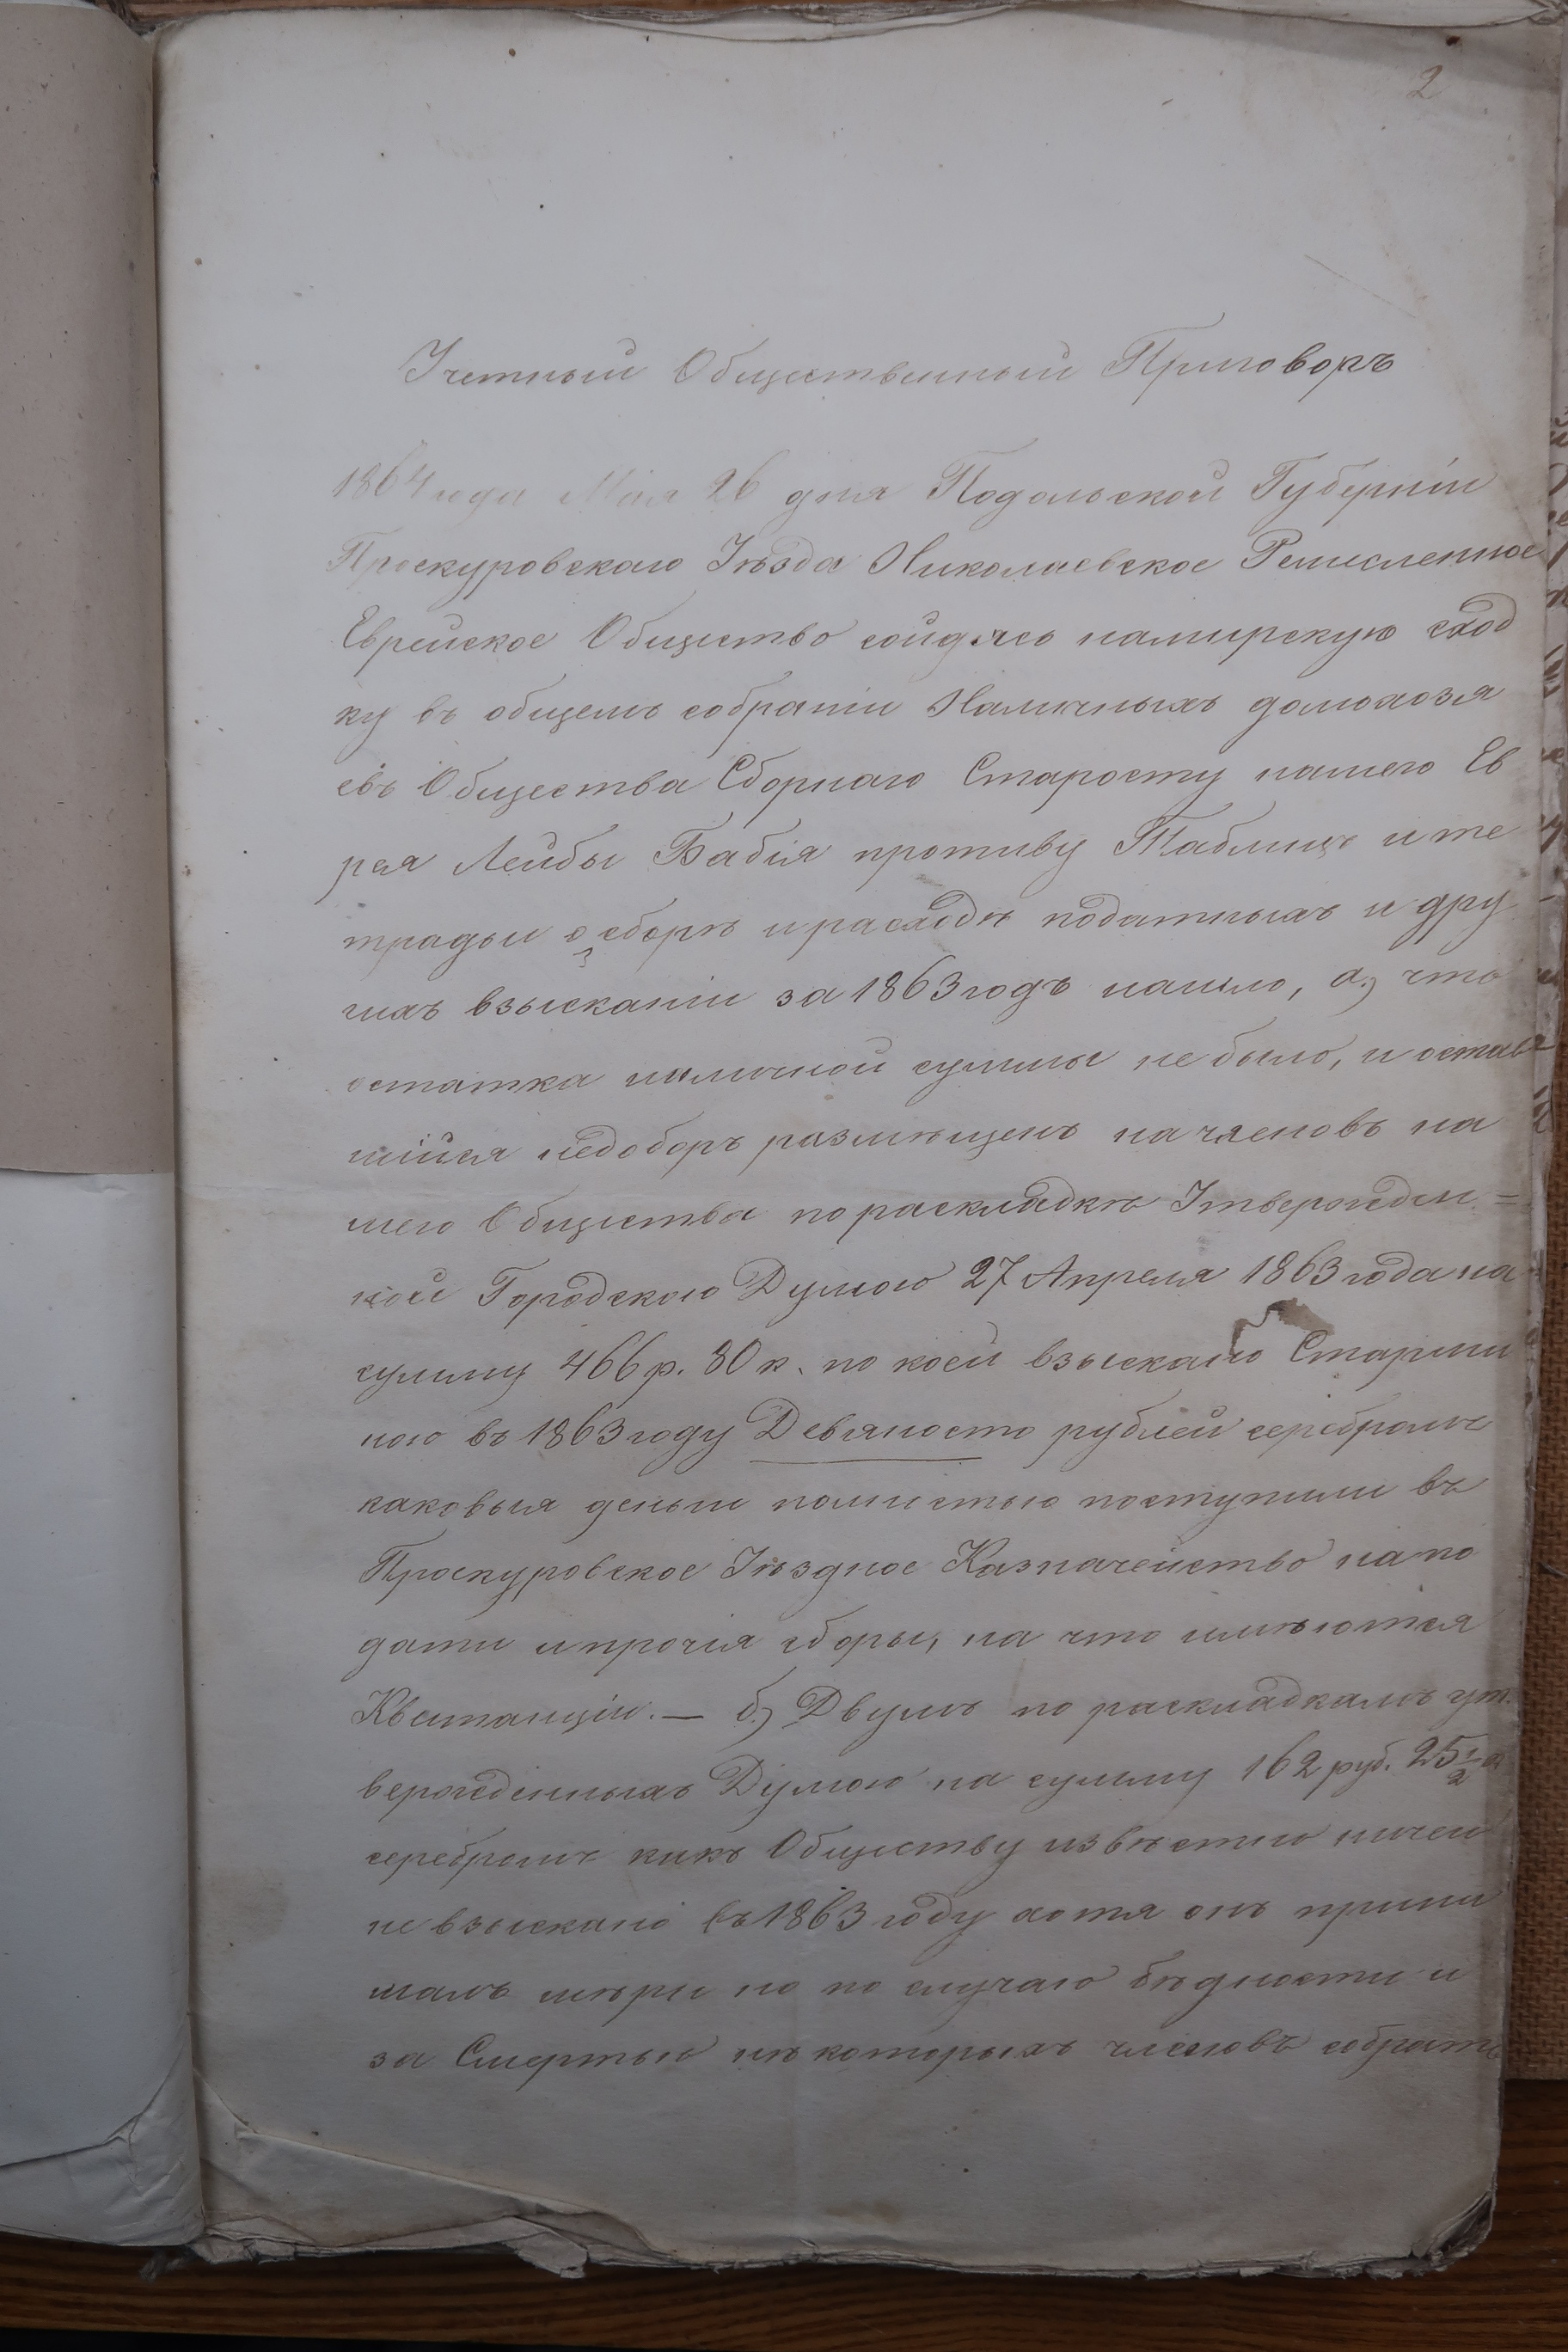 2
Учетный Общественный Приговоръ
1864 года Мая 26 дня Подольской Губерніи
Проскуровскаго Уѣзда Николаевское Ремесленное
Еврейское Общество сойдясь намирскую сход
ку въ общемъ собраніи Наличныхъ домохозя
евъ Общества Сборнаго Старосту нашего Ев
рея Лейбы Бабія противу Таблицъ и те
традьи о сборѣ и расходѣ податныхъ и дру
гихъ взысканіи за 1863 годъ нашло, а.) что
остатка наличной суммы не было, и оставв
шійся недоборъ размѣщенъ на членовъ на
шего Общества по раскладкѣ Утвержден=
ной Городскою Думою 27 Апреля 1863 года на
сумму 466 р. 80 к. по коей взыскано Старши
ною въ 1863 году Девяносто рублей серебромъ
каковыя деньги полностью поступили въ
Проскуровское Уѣздное Казначейство на по
дати и прочія сборы, на что имѣются
Квитанціи. — б.) Двумъ по раскладкамъ ут.
вержденныхъ Думою на сумму 162 руб. 25 1/2 к
серебромъ какъ Обществу извѣстно ничего
не взыскано въ 1863 году хотя онъ прини
малъ мѣры но по случаю бѣдности и
за Смертью нѣкоторыхъ членовъ собрать